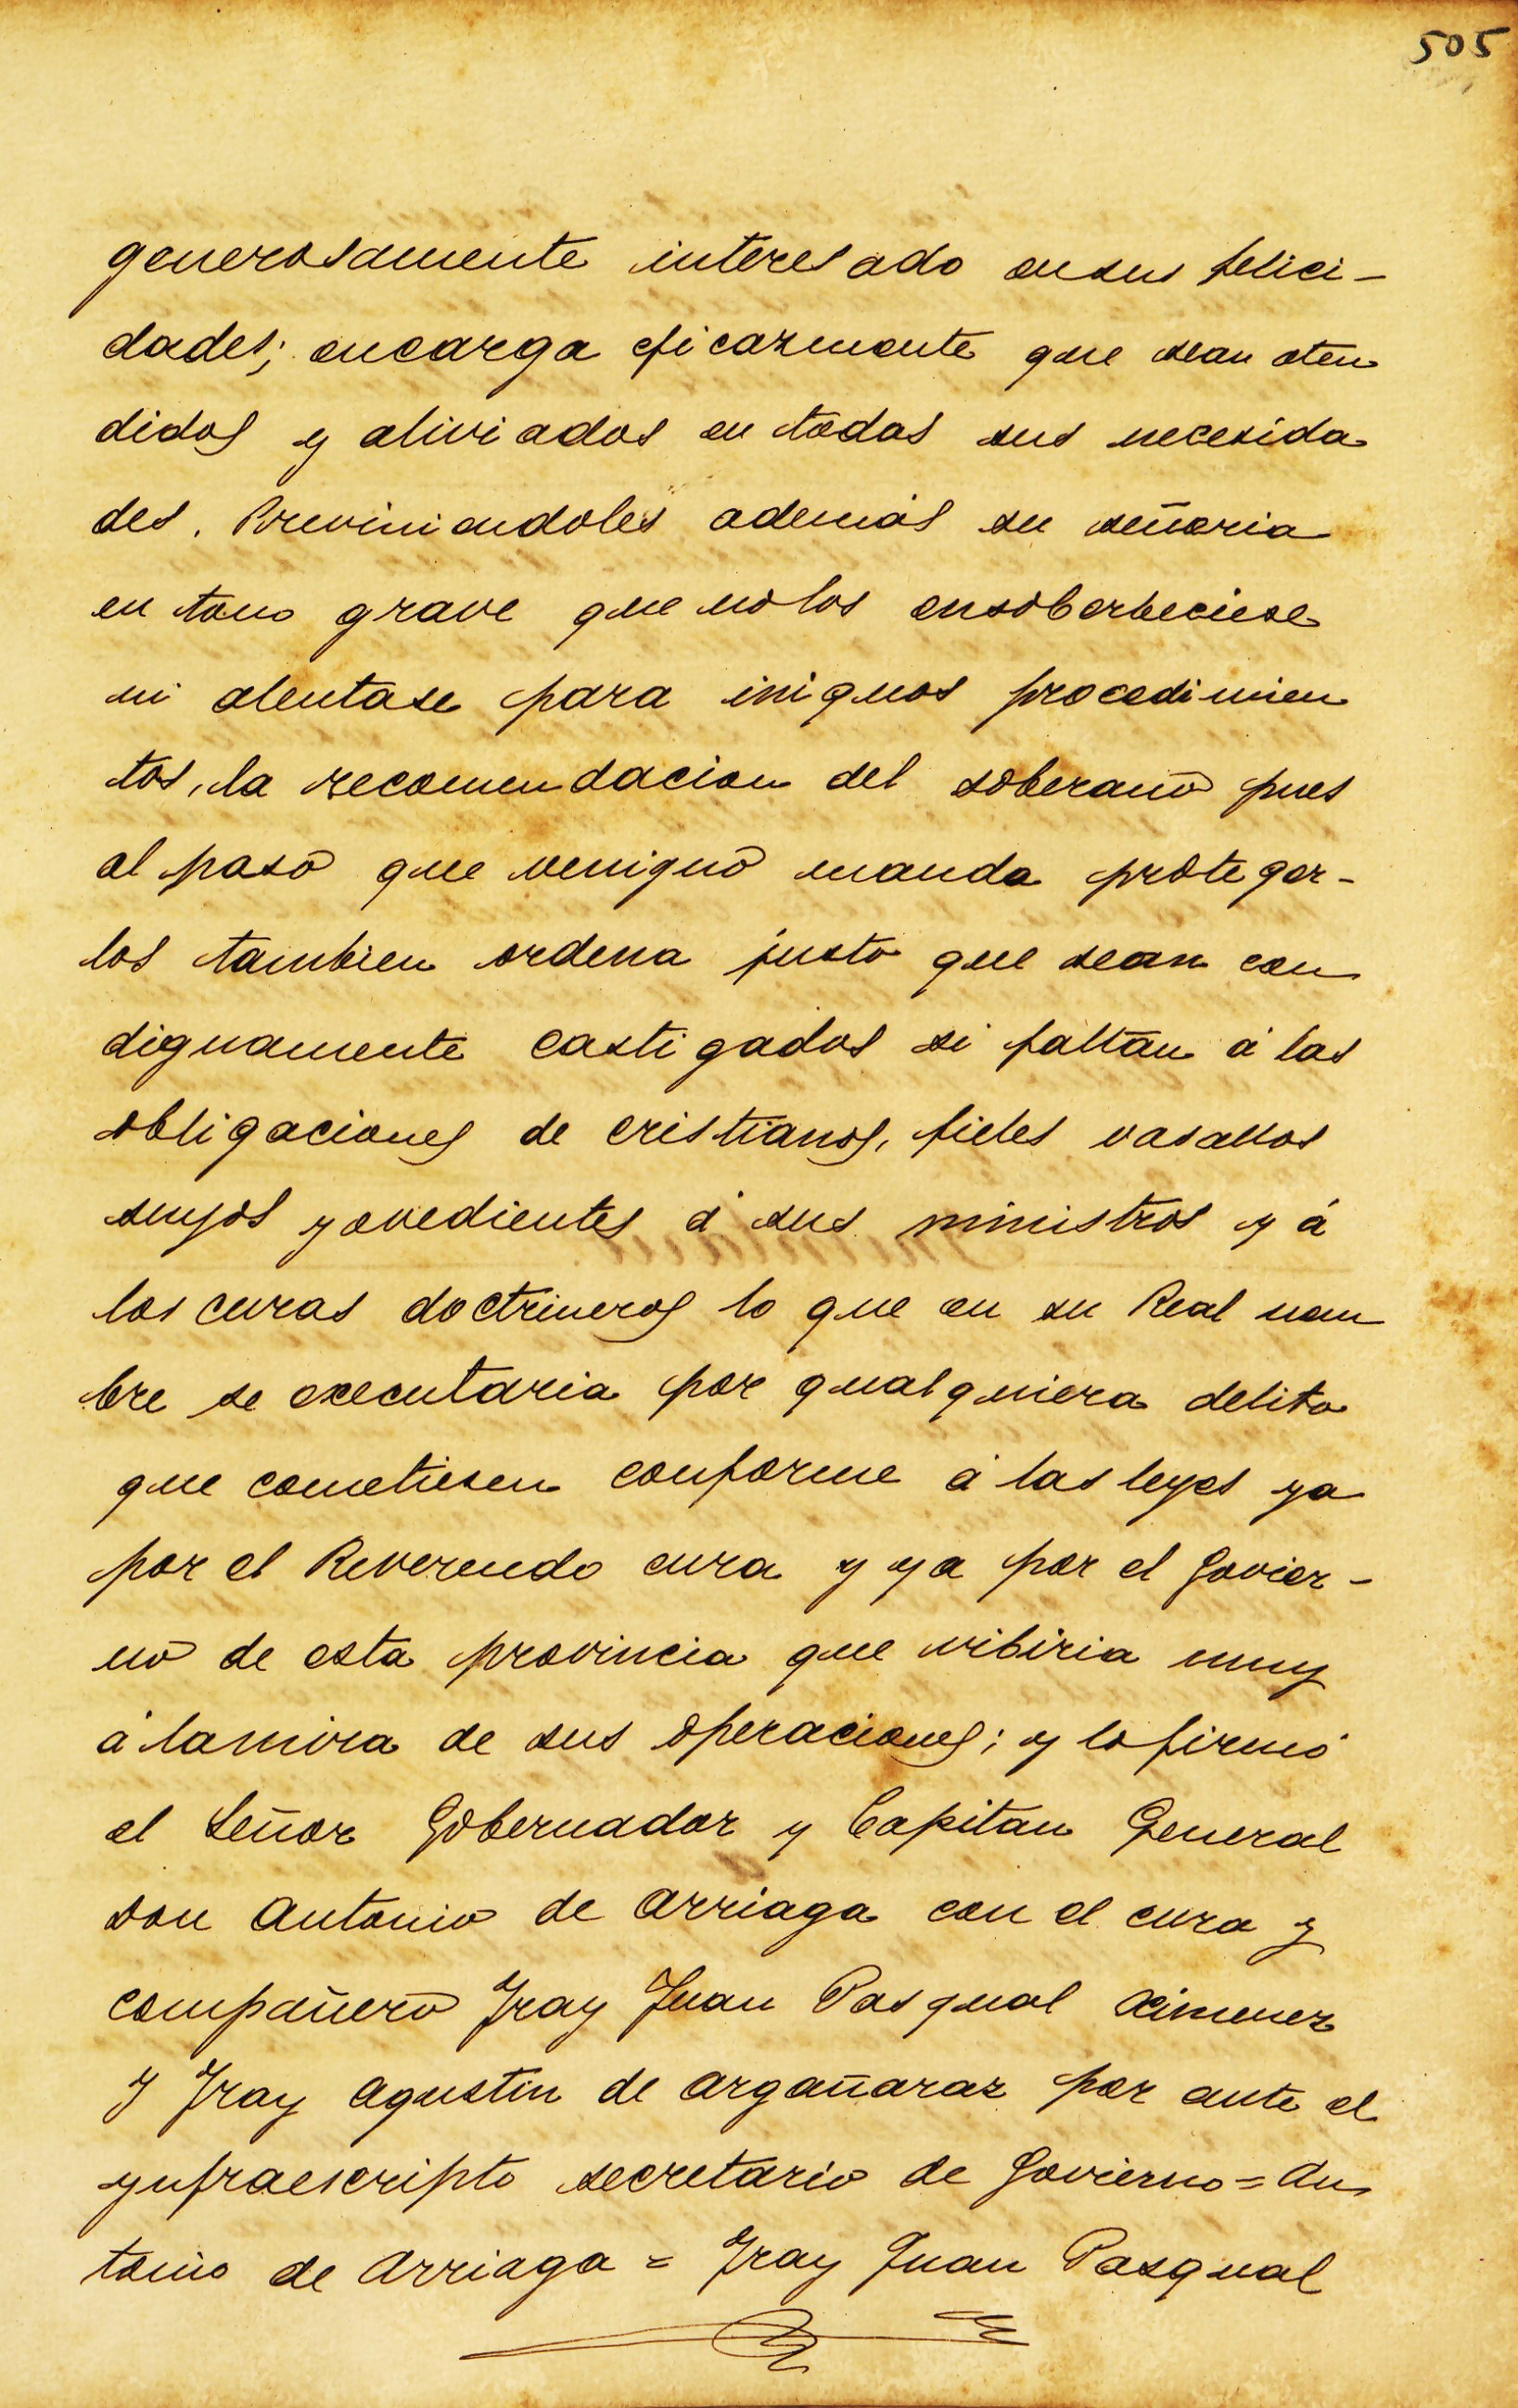 505
generosamente interesado en sus felici-
dades; encarga eficazmente que sean aten
didos y aliviados en todas sus necesida
des. Previniendoles además su señoria
en tono grave que no los ensoberbeciese
ni alentase para iniquos procedimien
tos, la recomendacion del soberano pues
al paso que venigno manda proteger-
los tambien ordena justo que sean con
dignamente castigados si faltan á las
obligaciones de cristianos, fieles vasallos
suyos y ovedientes á sus ministros y á
los curas doctrineros lo que en su Real nom
bre se executaria por qualquiera delito
que cometiesen conforme á las leyes ya
por el Reverendo cura y ya por el Govier-
no de esta provincia que vibiria muy
á la mira de sus operaciones; y lo firmó
el Señor Gobernador y Capitan General
Don Antonio de Arriaga con el cura y
compañero Fray Juan Pasqual Ximenez
y Fray Agustin de Argañaraz por ante el
ynfraescripto secretario de Govierno = An
tonio de Arriaga = Fray Juan Pasqual